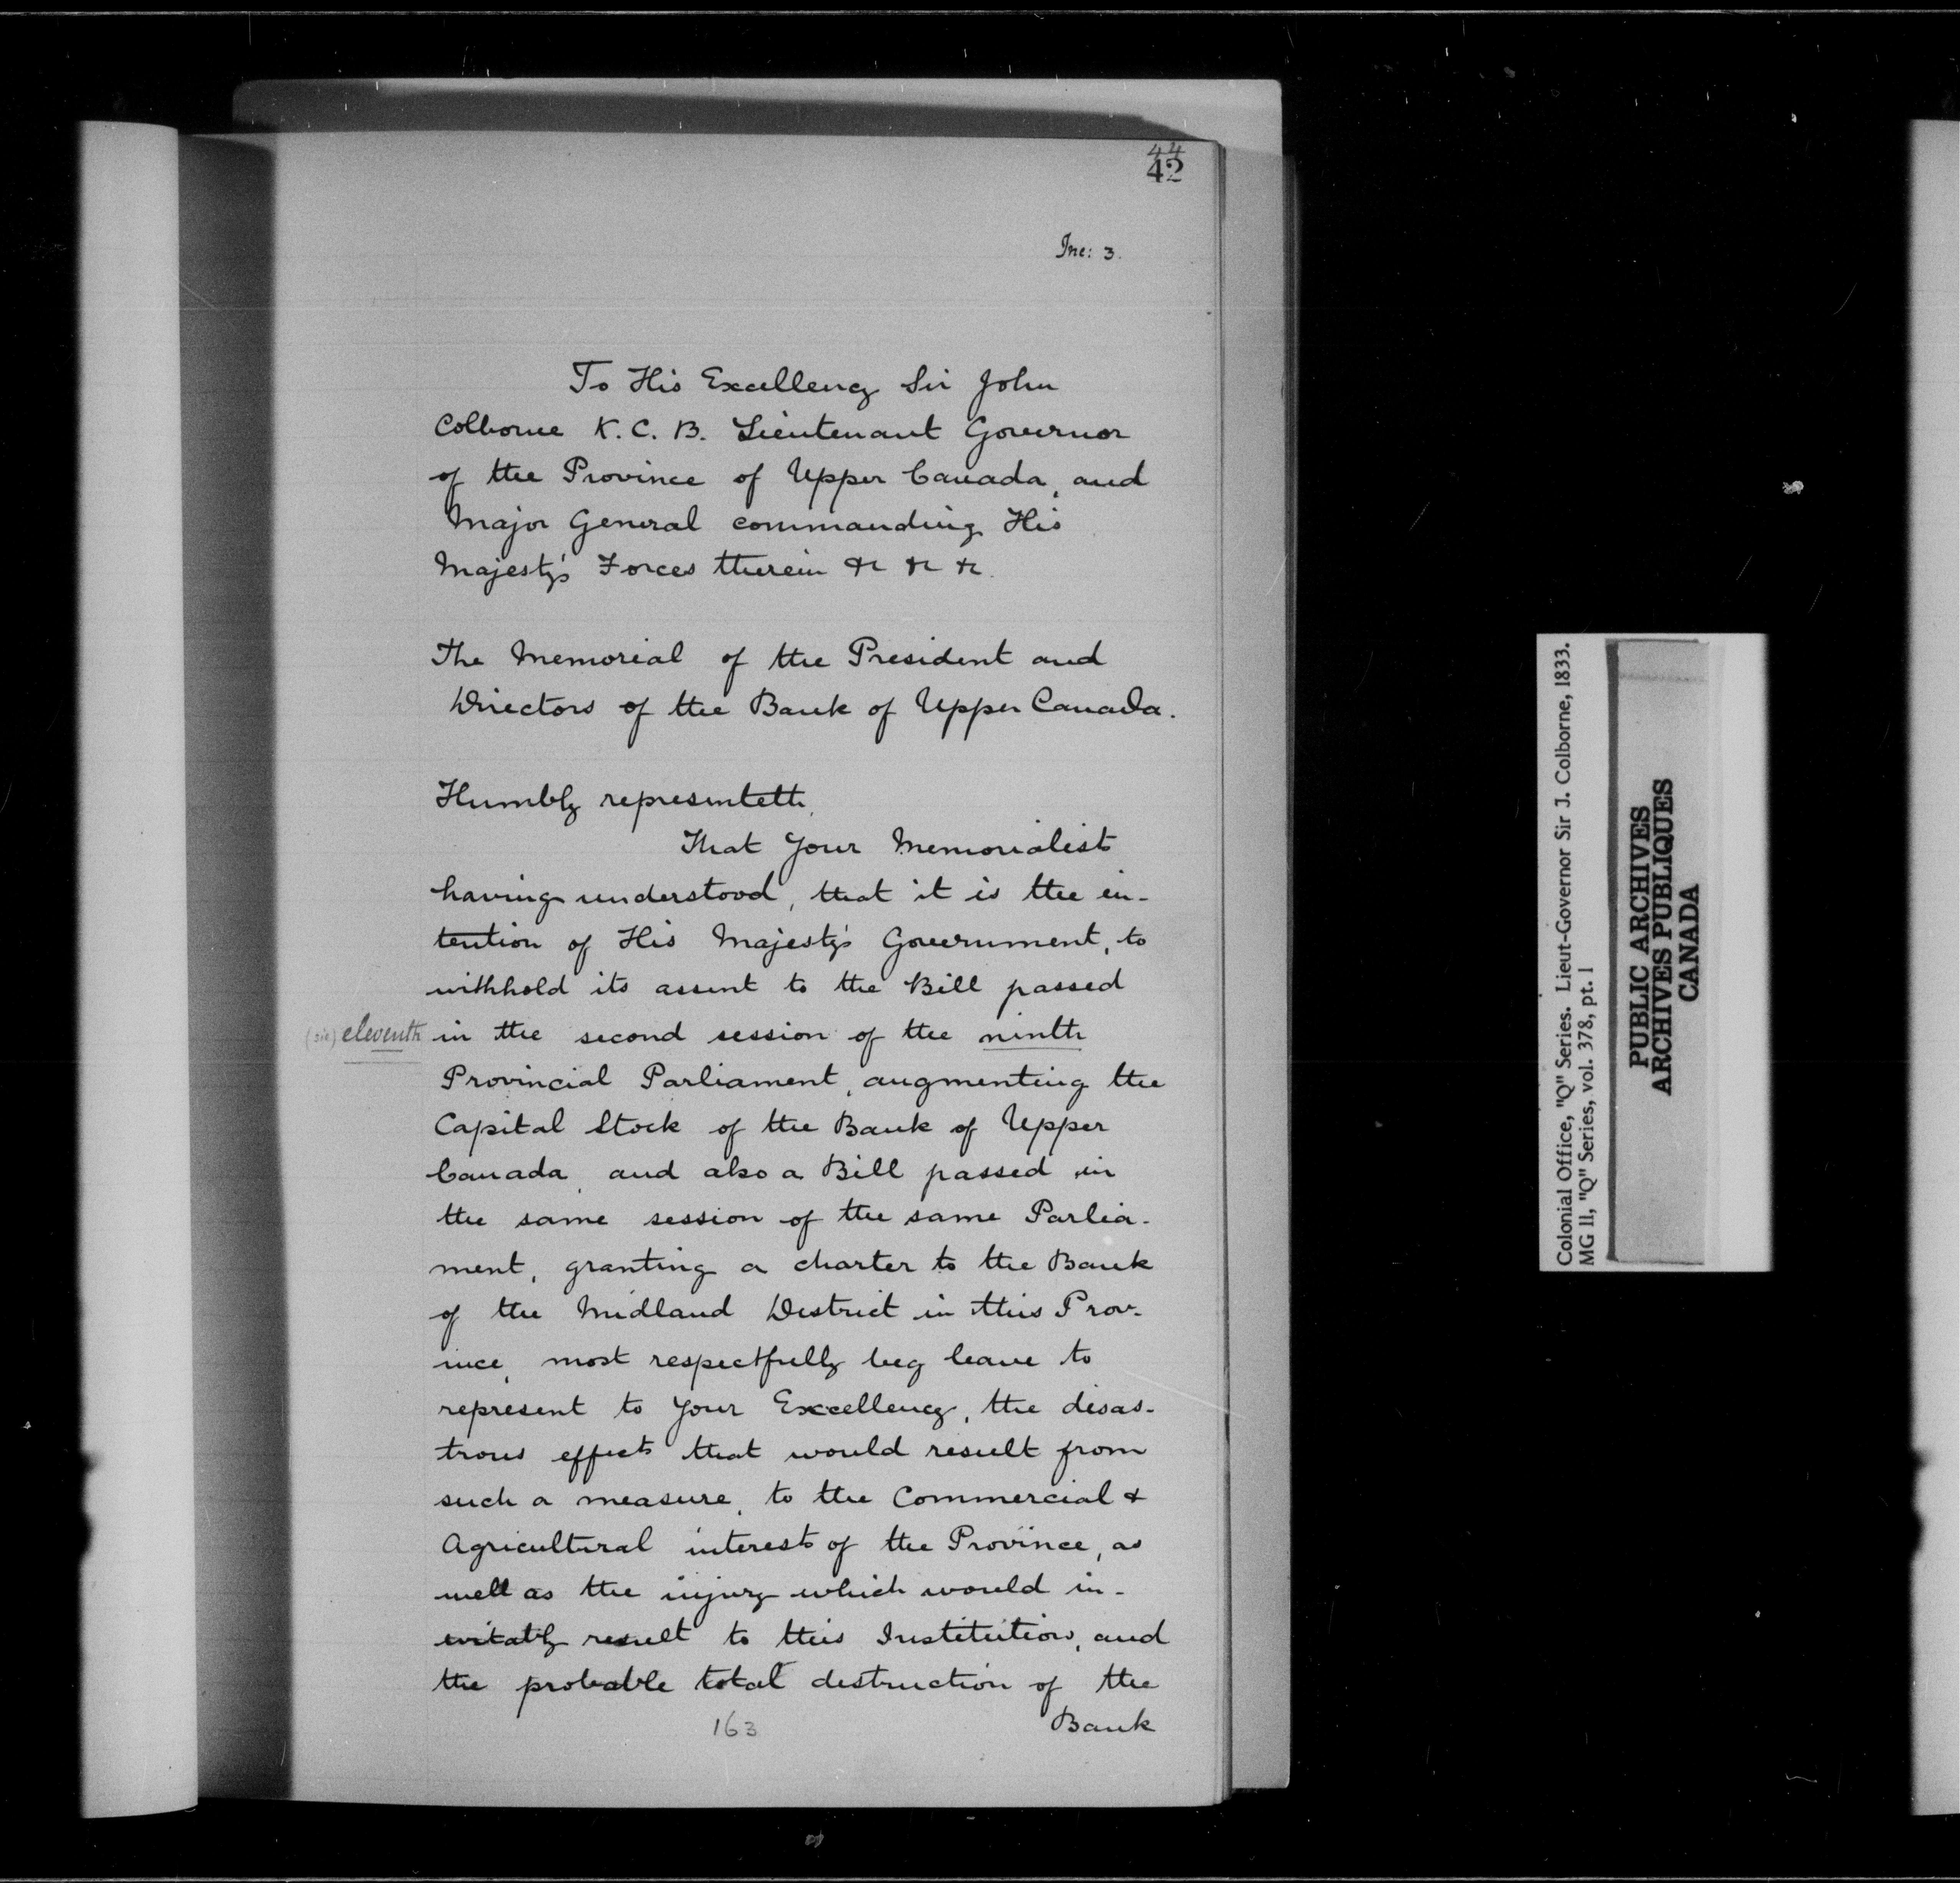 44
42
Inc: 3.
To His Excellency Sir John
Colborne K. C. B. Lieutenant Governor
of the Province of Upper Canada, and
Major General commanding His
Majesty's Forces therein &c &c &c.
The Memorial of the President and
Directors of the Bank of Upper Canada.
Humbly representeth,
That Your Memorialists
having understood, that it is the in-
tention of His Majesty's Government, to
withhold its assent to the Bill passed
(sic) eleventh in the second session of the ninth
Provincial Parliament, augmenting the
Capital Stock of the Bank of Upper
Canada, and also a Bill passed in
the same session of the same Parlia-
ment, granting a charter to the Bank
of the Midland District in this Prov-
ince, most respectfully beg leave to
represent to Your Excellency, the disas-
trous effects that would result from
such a measure, to the Commercial &
Agricultural interests of the Province, as
well as the injury which would in-
evitably result to this Institution, and
the probable total destruction of the
Bank
163
Colonial Office, "Q" Series. Lieut-Governor Sir J. Colborne, 1833.
MG 11, "Q" Series, vol. 378, pt. 1
PUBLIC ARCHIVES
ARCHIVES PUBLIQUES
CANADA